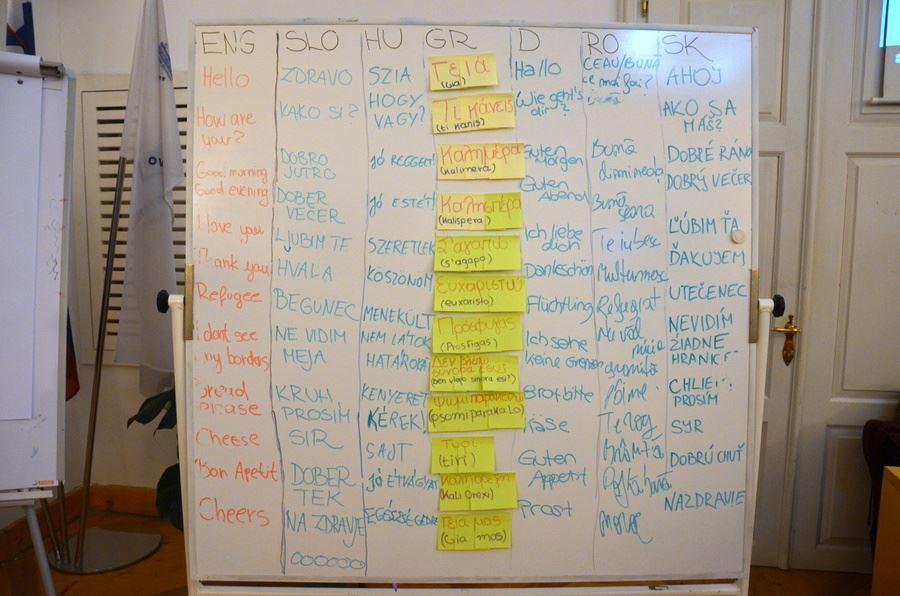 ENG SLO HU GR D RO SK
Hello
How are
your?
Good morning
Good evening
I love you
Thank you
Refugee
I dont see
my borders
Bread
please
Cheese
Bon Apetit
Cheers
ZDRAVO
KAKO SI?
DOBRO
JUTRO
DOBER
VEČER
LJUBIM TE
HVALA
BEGUNEC
NE VIDIM
MEJA
KRUH
PROSIM
SIR
DOBER
TEK
NA ZDRAVJE
SZIA
HOGY
VAGY?
JÓ REGGELT
JÓ ESTÉT
SZERETLEK
KÖSZÖNÖM
MENEKÜLT
NEM LÁTOK
HATÁROKAT
KENYERET
KÉREK!
SAJT
JÓ ÉTVÁGYAT
EGÉSZSÉGEDRE
Γειά
(Gia)
Τι κάνεις
(ti kanis)
Καλημέρα
(Kalimera)
Καλησπέρα
(Kalispera)
Σ'αγαπώ
(s'agapo)
Ευχαριστώ
(euxaristo)
Πρόσφυγας
(Prosfigas)
(den vlepo sinora esi?)
(psomi parakalo)
Τυρί
(tiri)
(Kali Orexi)
Γεια μας
(Gia mas)
Hallo
Wie geht's
dir?
Guten
Morgen
Guten
Abend
Ich liebe
dich
Dankeschön
Flüchtling
Ich sehe
keine Grenzen
Brot bitte
Käse
Guten
Appetit
Prost
CEAU/BUNĂ
ce mai faci?
Bună
dimineata
Bună
seara
Te iubesc
Multumesc
Refugiat
Nu văd
nicio
granită
Pâine
Te rog
Brânză
Poftă bună
AHOJ
AKO SA
MÁŠ?
DOBRÉ RÁNO
DOBRÝ VEČER
ĽÚBIM ŤA
ĎAKUJEM
UTEČENEC
NEVIDÍM
ŽIADNE
HRANICE
CHLIEB
PROSÍM
SYR
DOBRÚ CHUŤ
NAZDRAVIE